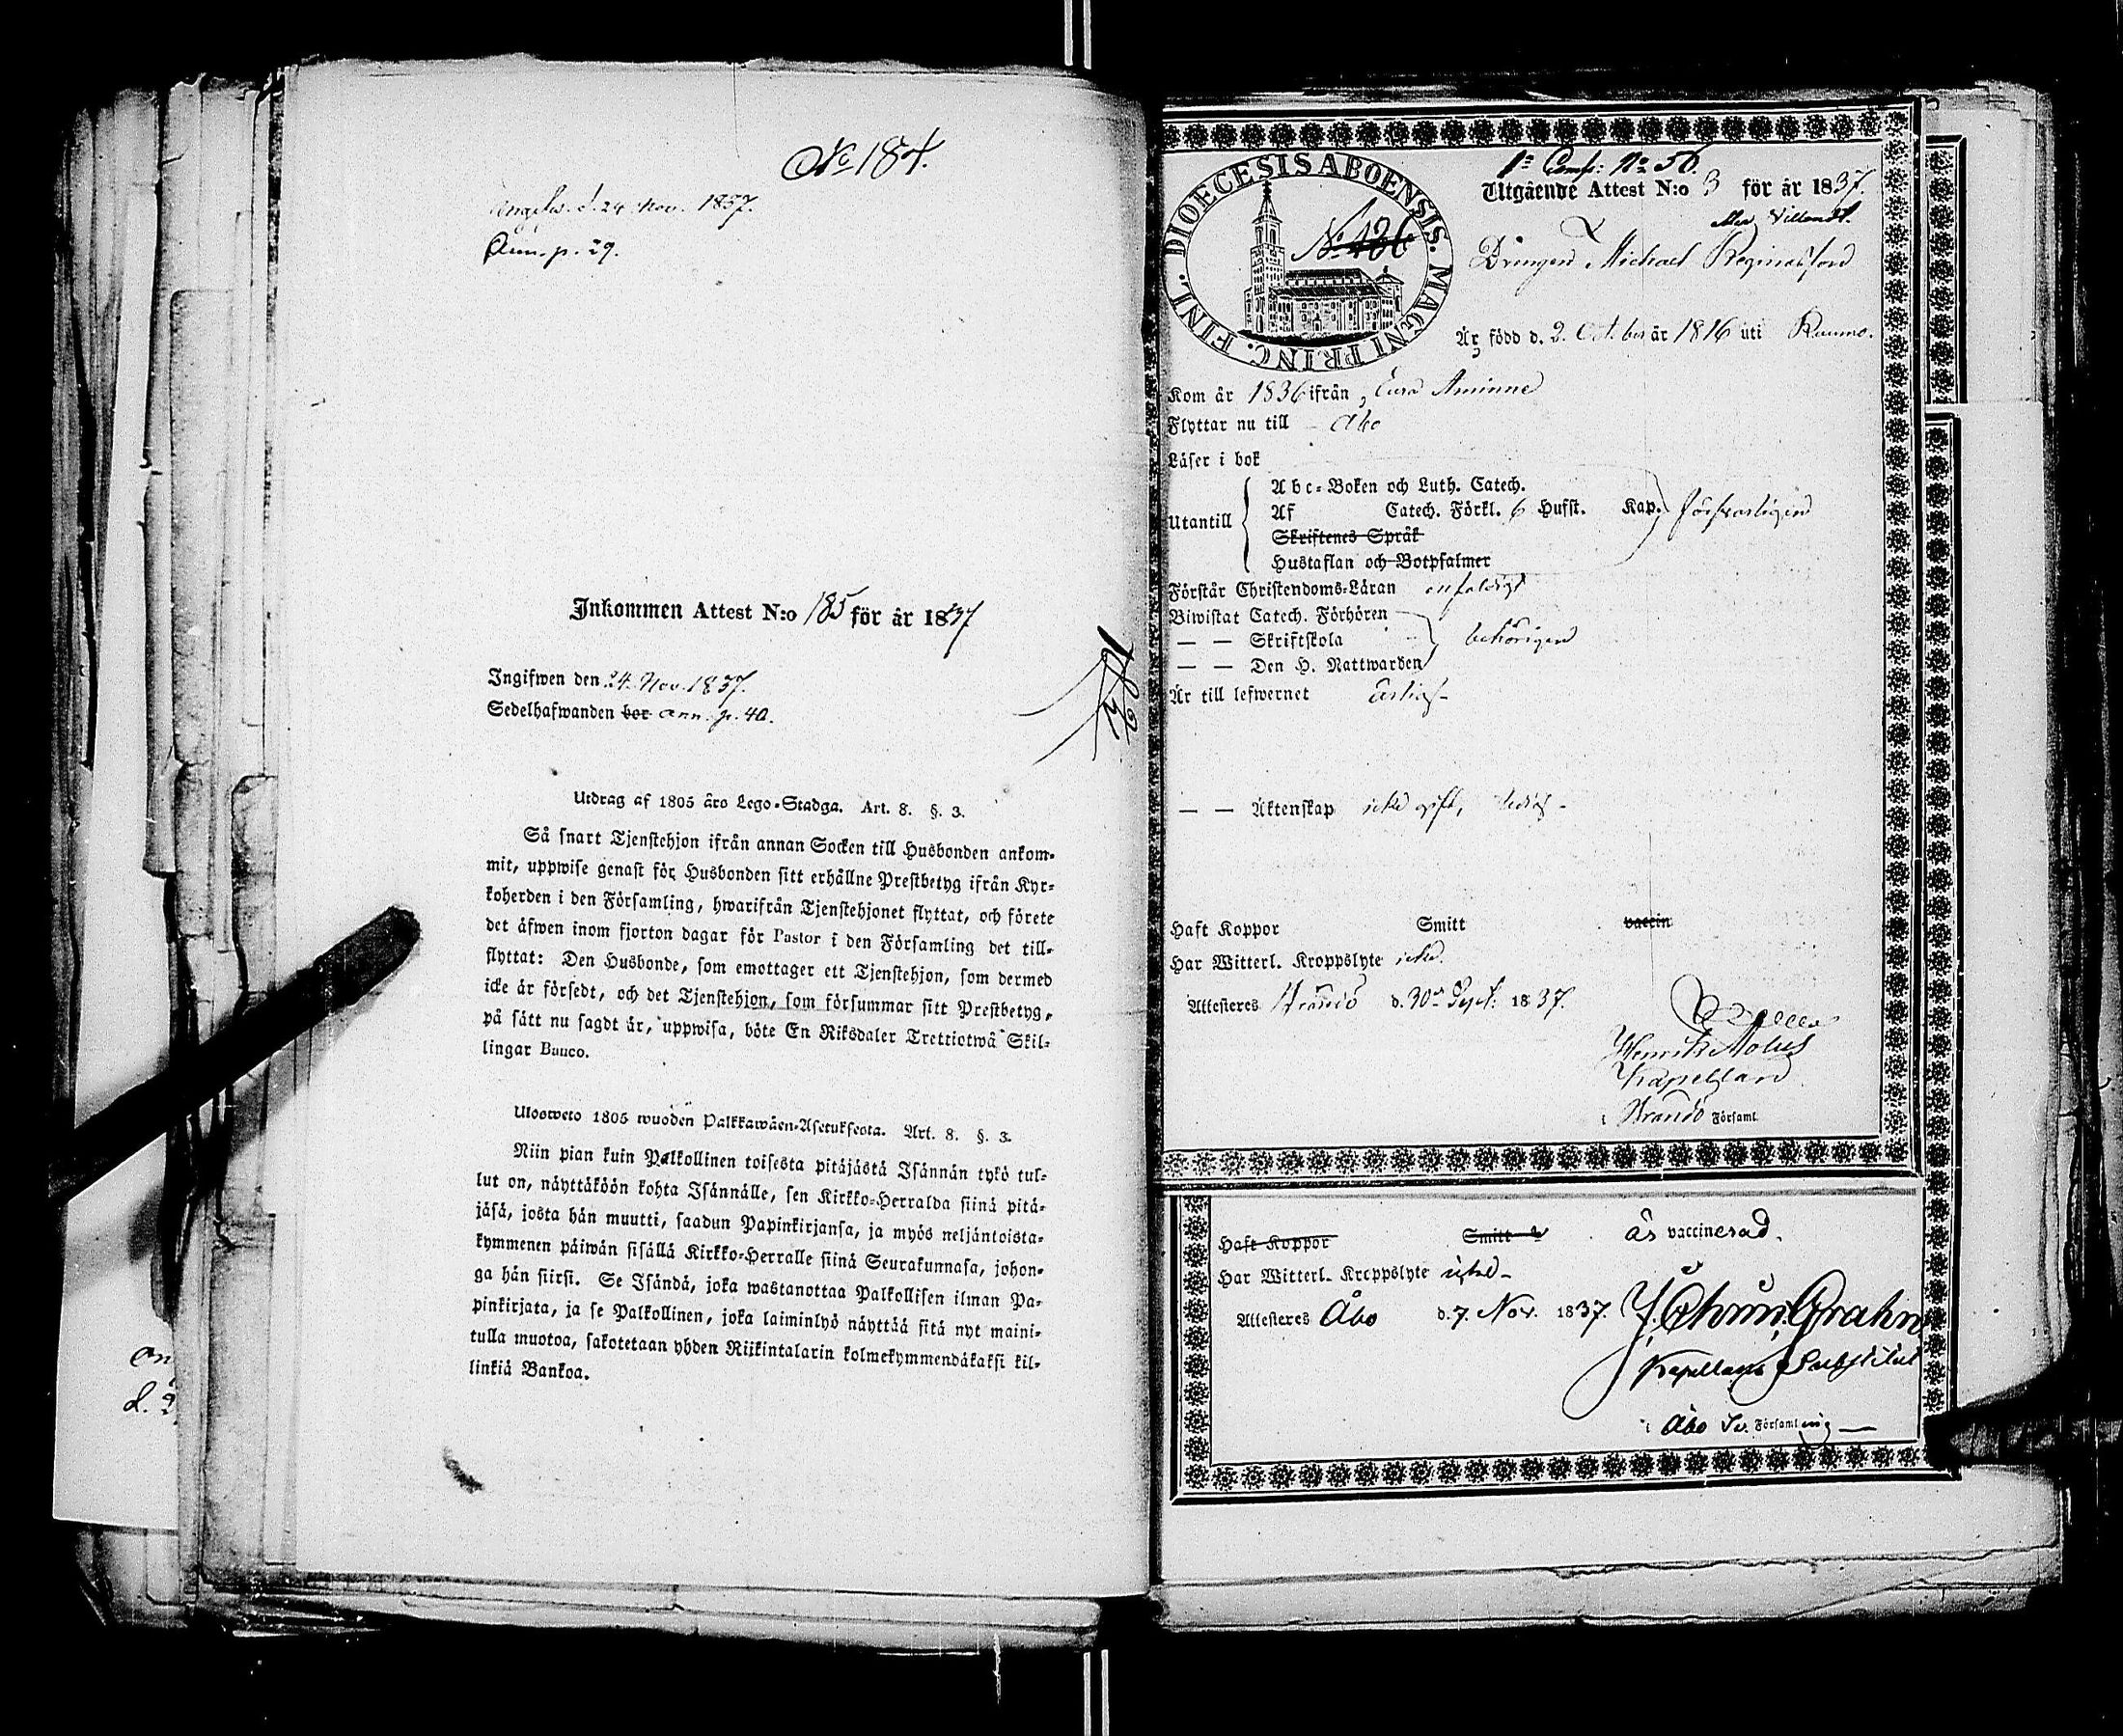 No 184.
Angifv. d. 24 Nov. 1837.
Ann. p. 29.
Inkommen Attest N:o 185 för år 1837
Ingifwen den 24. Nov. 1837.
Sedelhafwanden bor ann. p. 40.
Utdrag af 1805 års Lego-Stadga. Art. 8. §. 3.
Så snart Tjenstehjon ifrån annan Socken till Husbonden ankom-
mit, uppwise genast för Husbonden sitt erhållne Prestbetyg ifrån Kyr-
koherden i den Församling, hwarifrån Tjenstehjonet flyttat, och förete
det äfwen inom fjorton dagar för Pastor i den Församling det till-
flyttat: Den Husbonde, som emottager ett Tjenstehjon, som dermed
icke är försedt, och det Tjenstehjon, som försummar sitt Prestbetyg,
på sätt nu sagdt är, uppwisa, böte En Riksdaler Trettiotwå Skil-
lingar Banco.
Ulosweto 1805 wuoden Palkkawäen-Asetuksesta. Art. 8. §. 3.
Niin pian kuin Palkollinen toisesta pitäjästä Isännän tykö tul-
lut on, näyttäköön kohta Isännälle, sen Kirkko-Herralda siinä pitä-
jäsä, josta hän muutti, saadun Papinkirjansa, ja myös neljäntoista-
kymmenen päiwän sisällä Kirkko-Herralle siinä Seurakunnasa, johon-
ga hän siirsi. Se Isändä, joka wastanottaa Palkollisen ilman Pa-
pinkirjata, ja se Palkollinen, joka laiminlyö näyttää sitä nyt maini-
tulla muotoa, sakotetaan yhden Riikintalarin kolmekymmendäkaksi kil-
linkiä Bankoa.
DIOECESIS ABOENSIS. MAGNI PRINC. FINL.
No 136
No 56.
Utgående Attest N:o 3 för år 1837.
Drengen Michael
Är född d. 2 October år 1816 uti Raumo.
Kom år 1836 ifrån Eura Aminne
Flyttar nu till Åbo
Läser i bok
Abc-Boken och Luth. Catech.
Utantill Af Catech. Förkl. 6 Hufst. Kap. försvarligen
Skriftenes Språk
Hustaflan och Botpsalmer
Förstår Christendoms-Läran enfaldigt
Biwistat Catech. Förhören
— — Skriftskola behörigen
— — Den H. Nattwarden
Är till lefwernet ärlig
— — Äktenskap icke gift, ledig
Haft Koppor Smitt vaccin
Har Witterl. Kroppslyte icke.
Attesteres Brändö d. 30 Sept: 1837.
Henrik
Kapellan
i Brändö Församl.
Haft Koppor Smitt är vaccinerad.
Har Witterl. Kroppslyte icke
Attesteres Åbo d. 7. Nov. 1837. Grahn
Kapellans Substitut
i Åbo Sv. Församling